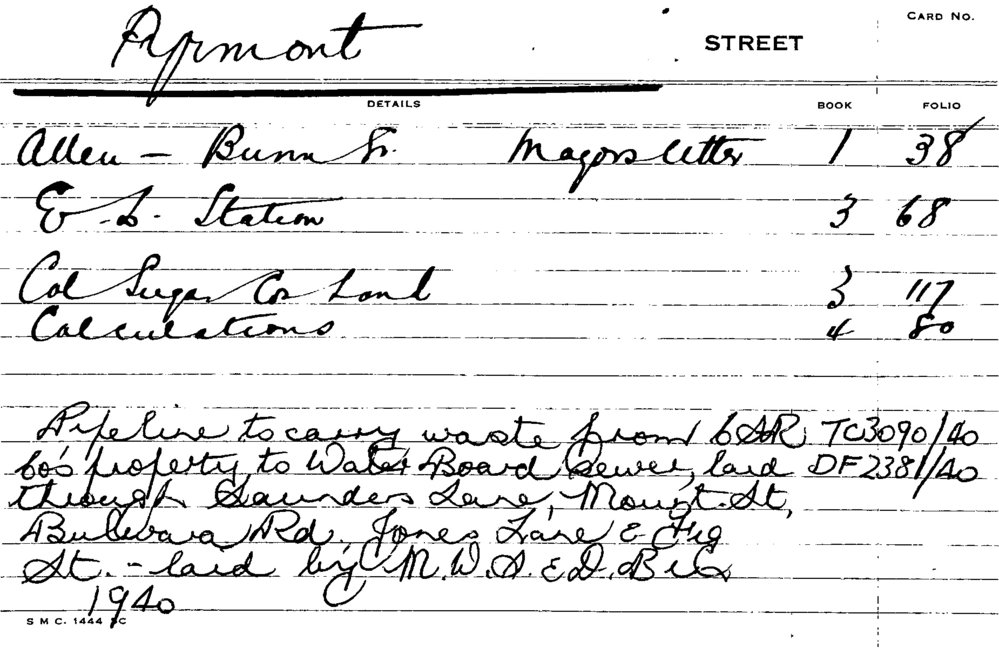 CARD NO.
Pyrmont STREET
DETAILS BOOK FOLIO
Allen - Bunn St. Mayors letter 1 38
E. L. Station 3 68
Col Sugar Co Land 3 117
Calculations 4 80
Pipeline to carry waste from CSR TC3090/40
Co's property to Water Board Sewer, laid DF2381/40
through Saunders Lane, Mount St,
Bulwara Rd. Jones Lane & Fig
St. - laid by M.W.S. & D. Bd
1940
S M C. 1444